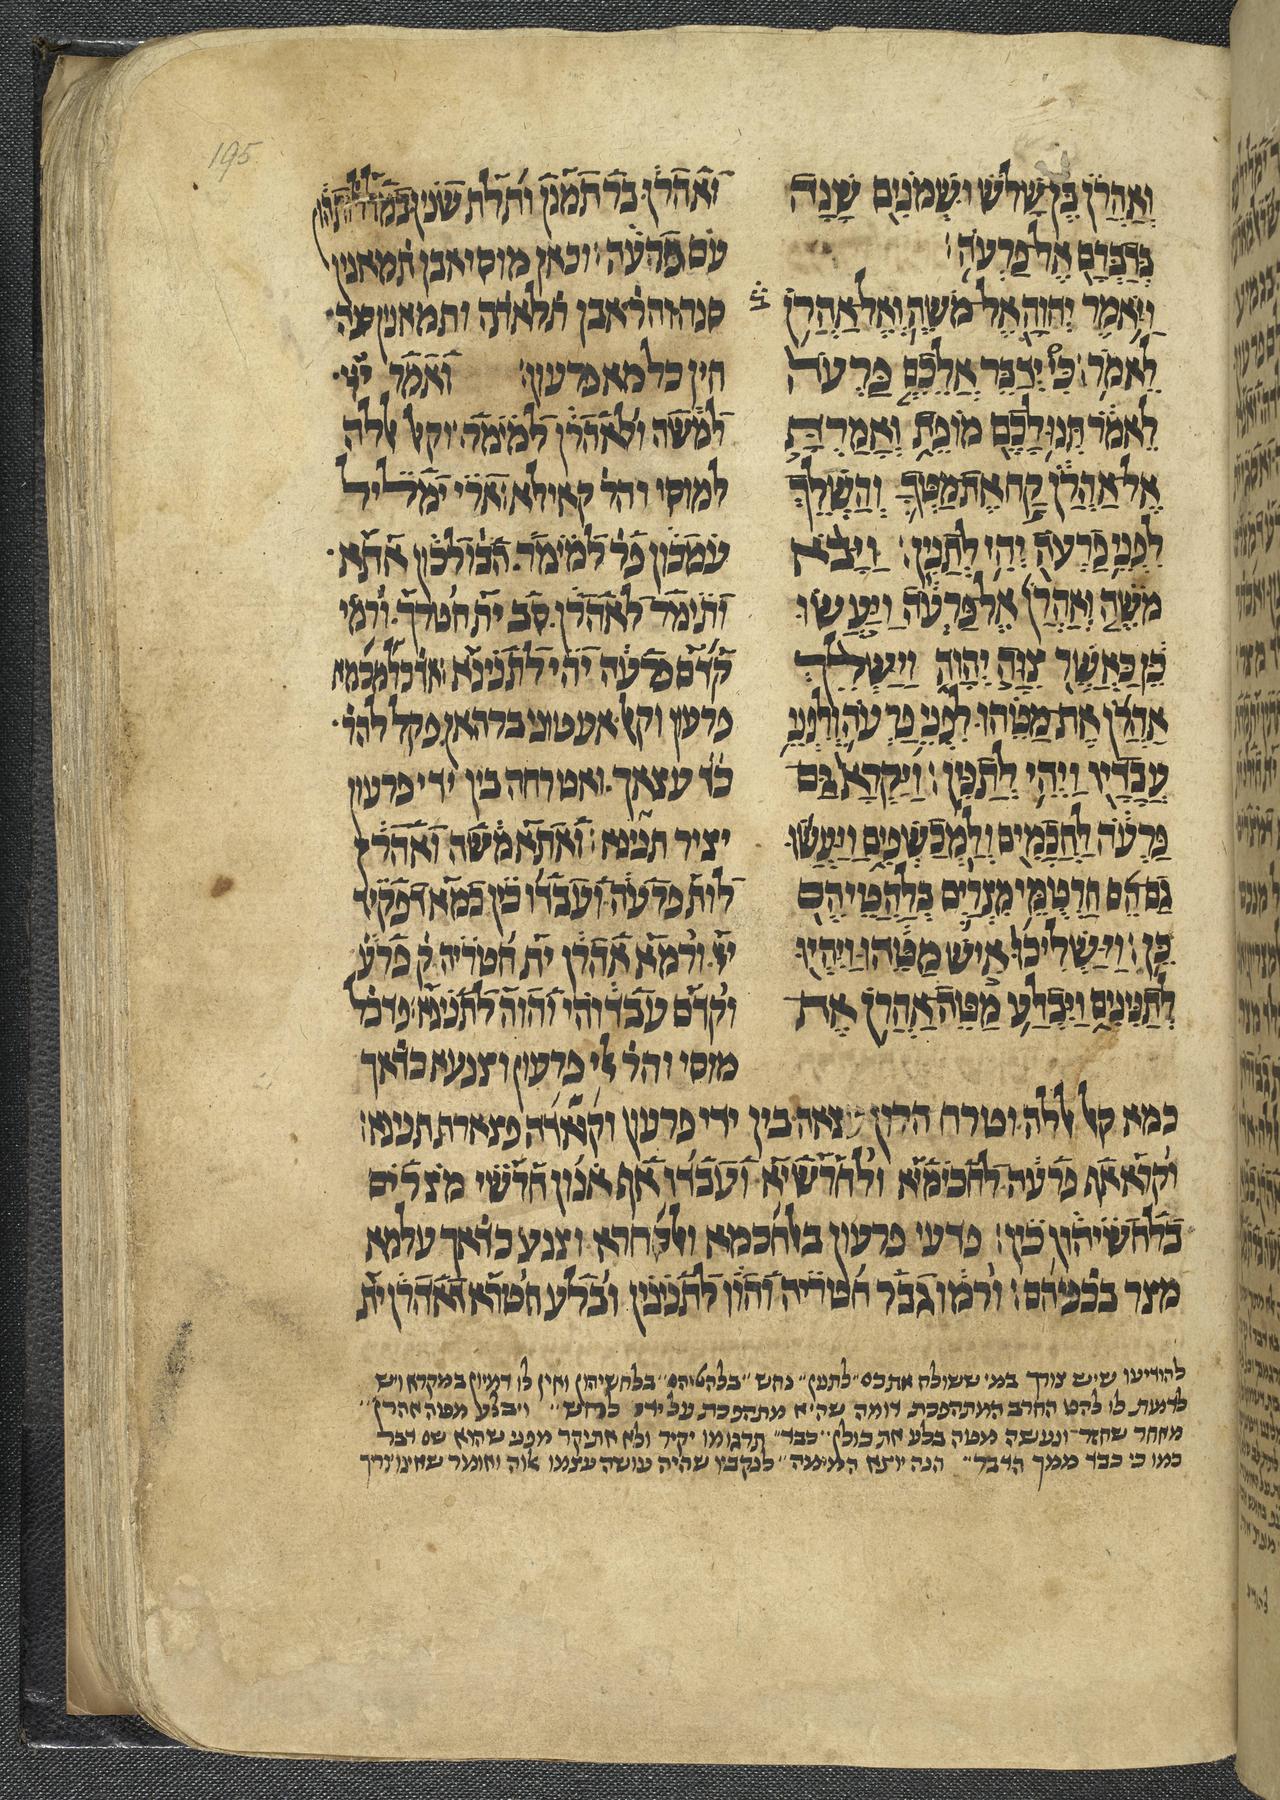 ואהרן בן שלש ושמנים שנה
בדברם אל פרעה׃
ויאמר יהוה אל משה ואל אהרן
לאמר׃ כי ידבר אלכם פרעה
לאמר תנו לכם מופת ואמרת
אל אהרן קח את מטך והשלך
לפני פרעה יהי לתנין׃ ויבא
משה ואהרן אל פרעה ויעשו
כן כאשר צוה יהוה וישלך
אהרן את מטהו לפני פרעה ולפני
עבדיו ויהי לתנין׃ ויקרא גם
פרעה לחכמים ולמכשפים ויעשו
גם הם חרטמי מצרים בלהטיהם
כן׃ וישליכו איש מטהו ויהיו
לתנינם ויבלע מטה אהרן את
ואהרן בר תמנן ותלת שנין במללותהון
עם פרעה׃ וכאן מוסי אבן תמאנין
סנה והר אבן תלאתה ותמאנין סנה
חין כלמא פרעון׃ ואמר ייי
למשה ולאהרן למימר׃ וקאל אללה
למוסי והר קאילא׃ ארי ימליל
עמכון פר למימר הבו לכון אתא
ותימר לאהרן סב ית חטרך ורמי
קדם פרעה יהי לתנינא׃ אד כלמכמא
פרעון וקאל אעטוני ברהאן פקל להר
כד עצאך ואטרחה בין ידי פרעון
יציר תנינא׃ ואתא משה ואהרן
לות פרעה ועבדו כין כמא דפקיד
ייי ורמא אהרן ית חטריה ק פרע
וקדם עבדוהי והוה לתנינא׃ פדכל
מוסי והר אלי פרעון וצנעא כדאך
כמא קאל אללה וטרח הרון עצאה בין ידי פרעון וקואדה פצארת תנינא׃
וקרא אף פרעה לחכימיא ולחרשיא ועבדו אף אנון חרשי מצרים
בלחשיהון כין׃ פדעי פרעון באלחכמא ואלסחרא וצנע כדאך עלמא
מצר בכפיהם׃ ורמו גבר חטריה והוו לתנינין ובלע חטרא דאהרן ית
להודיעו שיש צורך במי ששולח אתכם לתנין נחש בלהטיהם בלחשיהון ואין לו דמיון במקרא ויש
לדמות לו להט החרב המתהפכת דומה שהיא מתהפכת על ידי לחש ויבלע מטה אהרן
מאחר שחזר ונעשה מטה בלע את כולן כבד תרגומו יקיר ולא אתיקר מפני שהוא שם דבר
כמו כי כבד ממך הדבר הנה יוצא המימה לנקביו שהיה עושה עצמו אלוה ואומר שאינו צריך